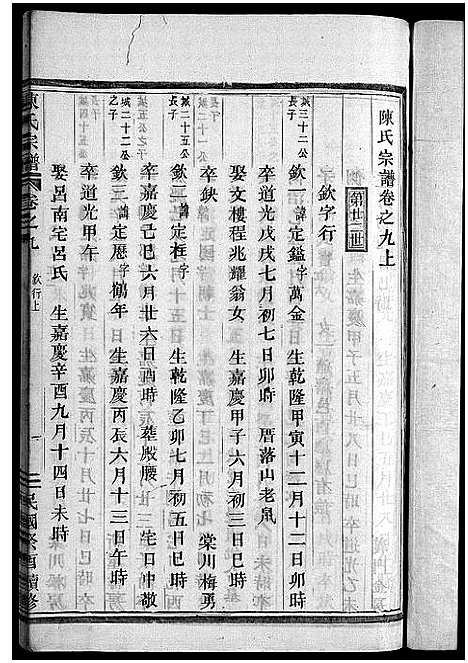 陳氏宗譜卷之九上
第廿三世
欽字行
城三十二公長子
欽一 諱定鎰 字萬金 生乾隆甲寅十二月十二日卯時
卒道光戊戌七月初七日卯時 厝落山老鼠
娶文樓程兆耀翁女 生嘉慶甲子六月初三日巳時
卒缺 棠川梅房
城二十五公長子
欽二 諱定框 字 生乾隆乙卯七月初五日巳時
卒嘉慶己巳六月廿六日酉時 葬殷腰
城二十二公之子
欽三 諱定曆 字鶴年 生嘉慶丙辰六月十三日午時
卒道光甲午
娶呂南宅呂氏 生嘉慶辛酉九月十四日未時
陳氏宗譜 卷之九 欽行上 一 民國癸酉續修